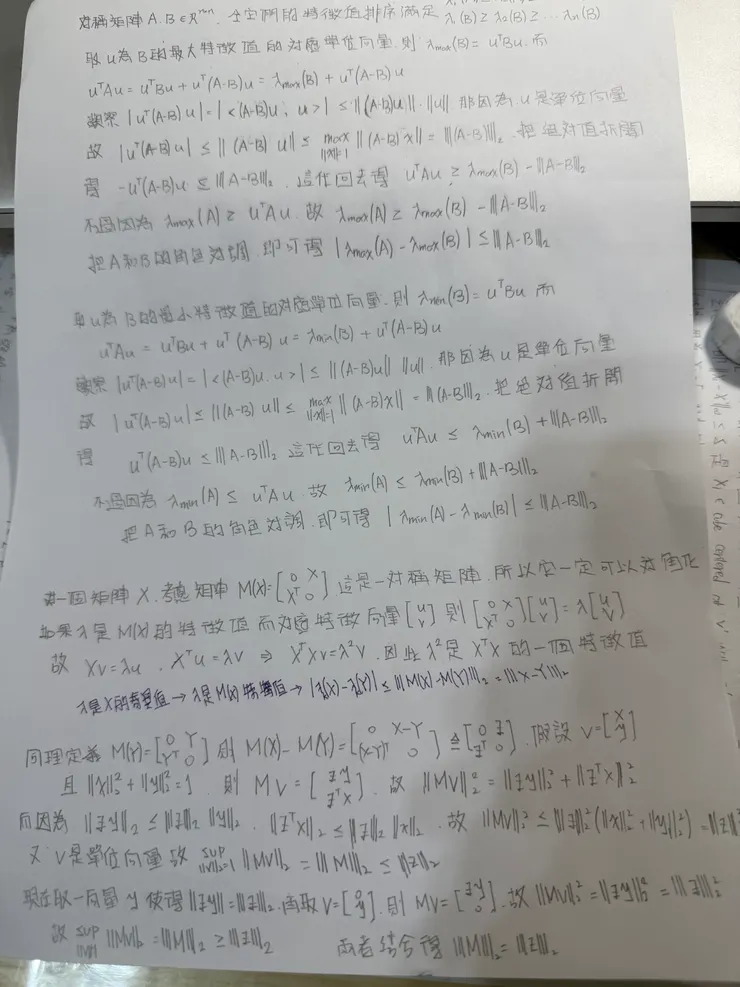 對稱矩陣 A, B ∈ R^{n×n}, 令它們的特徵值排序滿足 λ₁(B) ≥ λ₂(B) ≥ … λₙ(B)
取 u 為 B 的最大特徵值的對應單位向量, 則 λmax(B) = uᵀBu, 而
uᵀAu = uᵀBu + uᵀ(A-B)u = λmax(B) + uᵀ(A-B)u
觀察 |uᵀ(A-B)u| = |<(A-B)u, u>| ≤ ||(A-B)u||·||u||, 那因為 u 是單位向量
故 |uᵀ(A-B)u| ≤ ||(A-B)u|| ≤ max_{||x||=1} ||(A-B)x|| = |||A-B|||₂, 把絕對值拆開
得 -uᵀ(A-B)u ≤ |||A-B|||₂, 這代回去得 uᵀAu ≥ λmax(B) - |||A-B|||₂
不過因為 λmax(A) ≥ uᵀAu, 故 λmax(A) ≥ λmax(B) - |||A-B|||₂
把 A 和 B 的角色對調, 即可得 |λmax(A) - λmax(B)| ≤ |||A-B|||₂
取 u 為 B 的最小特徵值的對應單位向量, 則 λmin(B) = uᵀBu 而
uᵀAu = uᵀBu + uᵀ(A-B)u = λmin(B) + uᵀ(A-B)u
觀察 |uᵀ(A-B)u| = |<(A-B)u, u>| ≤ ||(A-B)u|| ||u||, 那因為 u 是單位向量
故 |uᵀ(A-B)u| ≤ ||(A-B)u|| ≤ max_{||x||=1} ||(A-B)x|| = |||A-B|||₂, 把絕對值拆開
得 uᵀ(A-B)u ≤ |||A-B|||₂ 這代回去得 uᵀAu ≤ λmin(B) + |||A-B|||₂
不過因為 λmin(A) ≤ uᵀAu, 故 λmin(A) ≤ λmin(B) + |||A-B|||₂
把 A 和 B 的角色對調, 即可得 |λmin(A) - λmin(B)| ≤ |||A-B|||₂
一個矩陣 X, 考慮矩陣 M(X) = [0 X; Xᵀ 0] 這是一對稱矩陣, 所以它一定可以對角化
如果 λ 是 M(X) 的特徵值 而對應特徵向量 [u; v] 則 [0 X; Xᵀ 0][u; v] = λ[u; v]
故 Xv = λu, Xᵀu = λv ⇒ XᵀXv = λ²v, 因此 λ² 是 XᵀX 的一個特徵值
λ是X的奇異值 → λ是M(X)特徵值 → |λᵢ(X) - λᵢ(Y)| ≤ |||M(X) - M(Y)|||₂ = |||X-Y|||₂
同理定義 M(Y) = [0 Y; Yᵀ 0] 則 M(X) - M(Y) = [0 X-Y; (X-Y)ᵀ 0] ≜ [0 Z; Zᵀ 0], 假設 V = [x; y]
且 ||x||₂² + ||y||₂² = 1, 則 MV = [Zy; Zᵀx], 故 ||MV||₂² = ||Zy||₂² + ||Zᵀx||₂²
而因為 ||Zy||₂ ≤ |||Z|||₂ ||y||₂, ||Zᵀx||₂ ≤ |||Z|||₂ ||x||₂, 故 ||MV||₂² ≤ |||Z|||₂² (||x||₂² + ||y||₂²) = |||Z|||
又 V 是單位向量 故 sup_{||V||₂=1} ||MV||₂ = |||M|||₂ ≤ |||Z|||₂
現在取一向量 y 使得 ||Zy|| = |||Z|||₂, 再取 V = [0; y], 則 MV = [Zy; 0], 故 ||MV||₂² = ||Zy||₂² = |||Z|||₂²
故 sup_{||V||} ||MV||₂ = |||M|||₂ ≥ |||Z|||₂ 兩者結合得 |||M|||₂ = |||Z|||₂